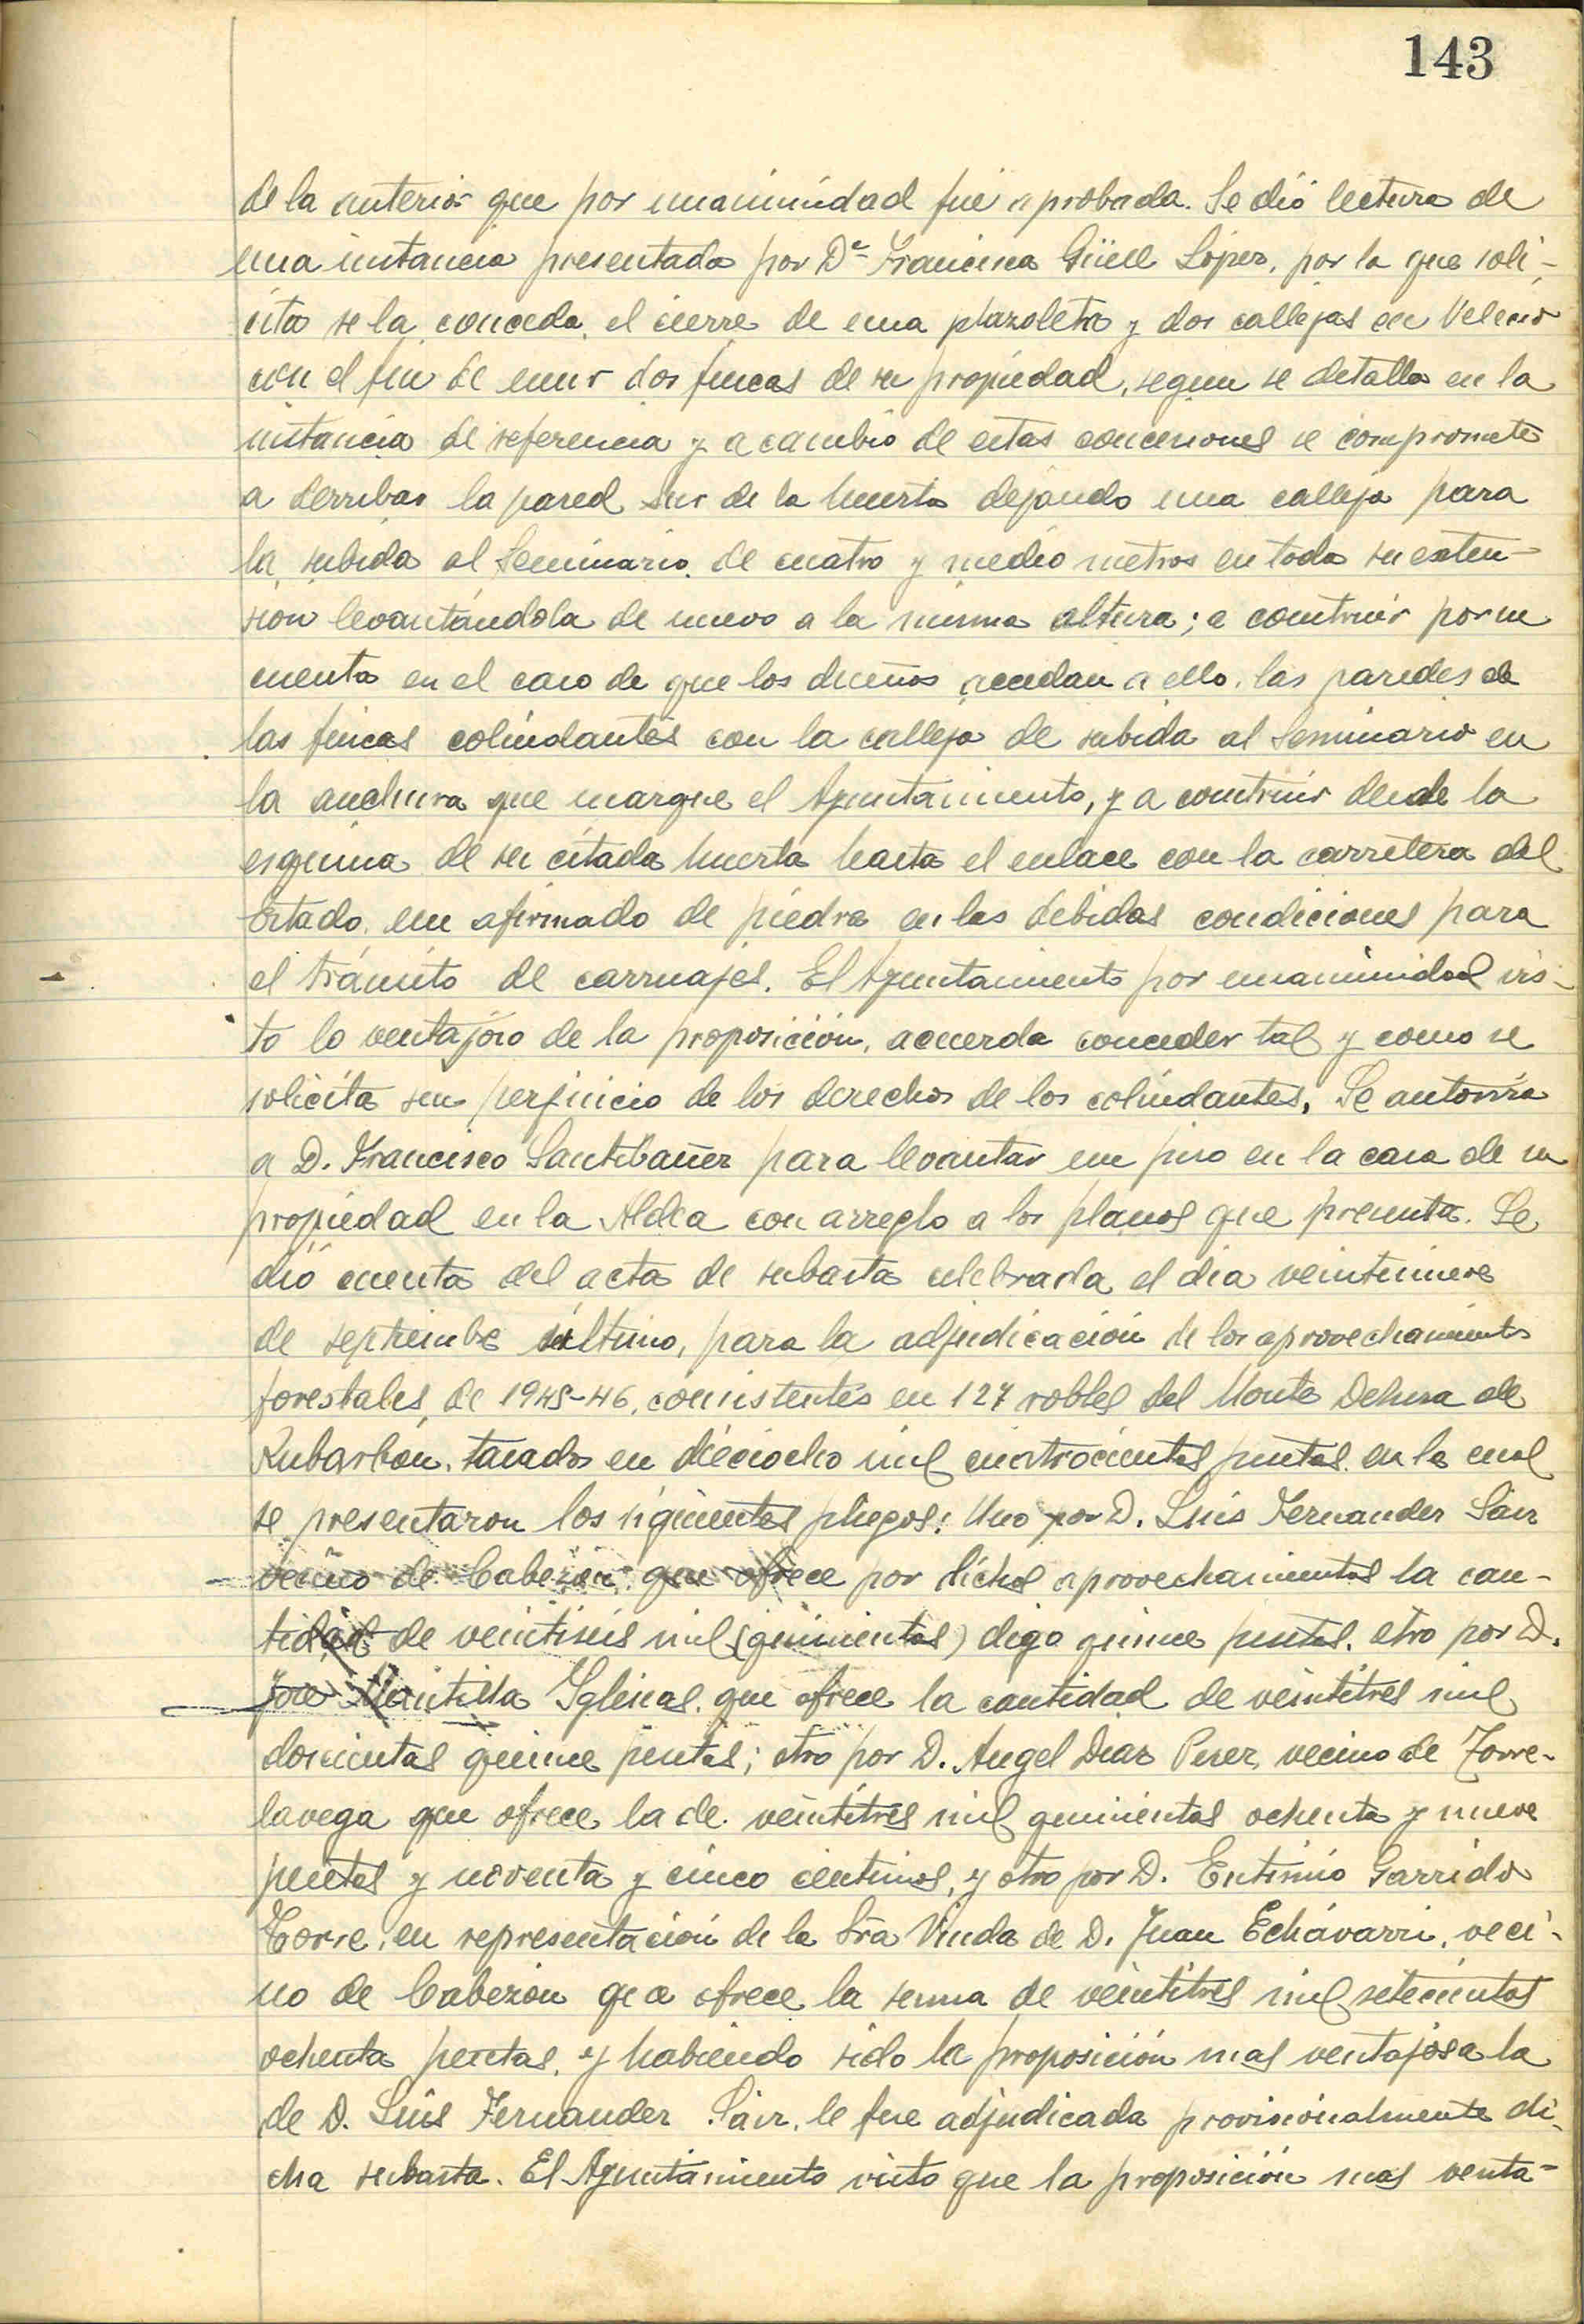 143
de la anterior que por unanimidad fué aprobada. Se dió lectura de
una instancia presentada por Dª Francisca Güell López, por la que soli-
cita se la conceda el cierre de una plazoleta y dos callejas en Velecio
con el fin de unir dos fincas de su propiedad, segun se detalla en la
instancia de referencia y a cambio de estas concesiones se compromete
a derribar la pared sur de la huerta dejando una calleja para
la subida al Seminario de cuatro y medio metros en toda su exten-
sion levantándola de nuevo a la misma altura; a construir por su
cuenta en el caso de que los dueños accedan a ello, las paredes de
las fincas colindantes con la calleja de subida al Seminario en
la anchura que marque el Ayuntamiento, y a construir desde la
esquina de su citada huerta hasta el enlace con la carretera del
Estado, un afirmado de piedra en las debidas condiciones para
el tránsito de carruajes. El Ayuntamiento por unanimidad vis-
to lo ventajoso de la proposición, acuerda conceder tal y como se
solicita sin perjuicio de los derechos de los colindantes. Se autoriza
a D. Francisco Santibañez para levantar un piso en la casa de su
propiedad en la Aldea con arreglo a los planos que presenta. Se
dió cuenta del acta de subasta celebrada el dia veintinueve
de septiembe último, para la adjudicación de los aprovechamientos
forestales, de 1945-46, consistentes en 127 robles del Monte Dehesa de
tasados en dieciocho mil cuatrocientas pesetas en la cual
se presentaron los siguientes pliegos: Uno por D. Luis Fernandez Saiz
vecino de Cabezón que ofrece por dichos aprovechamientos la can-
tidad de veintiseis mil (quinientas) digo quince pesetas, otro por D.
Jose Mantilla Iglesias, que ofrece la cantidad de veintitres mil
doscientas quince pesetas; otro por D. Angel Diaz Perez vecino de Torre-
lavega que ofrece la de veintitres mil quinientas ochenta y nueve
pesetas y noventa y cinco centimos, y otro por D. Eutimio Garrido
Torre, en representación de la Sra Viuda de D. Juan Echávarri, veci-
no de Cabezón que ofrece la suma de veintitres mil setecientas
ochenta pesetas, y habiendo sido la proposición mas ventajosa la
de D. Luis Fernandez Saiz, le fue adjudicada provisionalmente di-
cha subasta. El Ayuntamiento visto que la proposición mas venta-